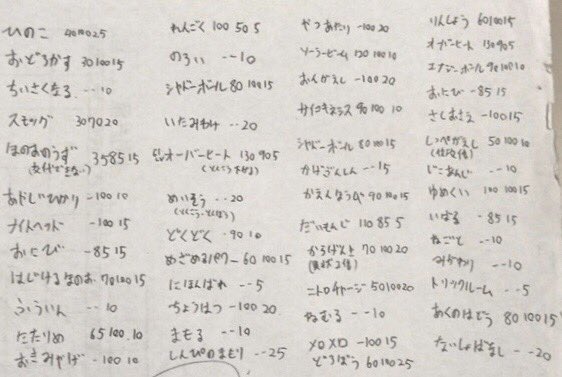 ひのこ 40 100 25
おどろかす 30 100 15
ちいさくなる - - 10
スモッグ 30 70 20
ほのおのうず 35 85 15
(交代できない)
あやしいひかり - 100 10
ナイトヘッド - 100 15
おにび - 85 15
はじけるほのお 70 100 15
ふういん - - 10
たたりめ 65 100 10
おきみやげ - 100 10
れんごく 100 50 5
のろい - - 10
シャドーボール 80 100 15
いたみわけ - - 20
オーバーヒート 130 90 5
(とくこう下がる)
めいそう - - 20
(とくこう・とくぼう)
どくどく - 90 10
めざめるパワー - 60 100 15
にほんばれ - - 5
ちょうはつ - 100 20
まもる - - 10
しんぴのまもり - - 25
やつあたり - 100 20
ソーラービーム 120 100 10
おんがえし - 100 20
サイコキネシス 90 100 10
シャドーボール 80 100 15
かげぶんしん - - 15
かえんほうしゃ 90 100 15
だいもんじ 110 85 5
からげんき 70 100 20
(異状2倍)
ニトロチャージ 50 100 20
ねむる - - 10
メロメロ - 100 15
どろぼう 60 100 25
りんしょう 60 100 15
オーバーヒート 130 90 5
エナジーボール 90 100 10
おにび - 85 15
さしおさえ - 100 15
しっぺがえし 50 100 10
じこあんじ - - 10
ゆめくい 100 100 15
いばる - 85 15
ねごと - - 10
みがわり - - 10
トリックルーム - - 5
あくのはどう 80 100 15
ないしょばなし - - 20